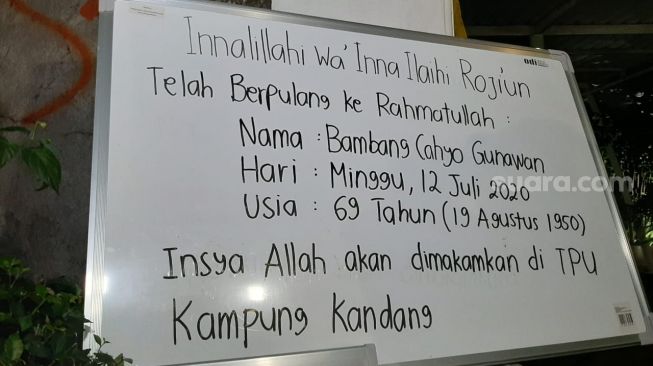 Innalillahi wa' Inna Ilaihi Roji'un
odi
Telah Berpulang ke Rahmatullah :
Nama : Bambang Cahyo Gunawan
Hari : Minggu, 12 Juli 2020
suara.com
Usia : 69 Tahun (19 Agustus 1950)
Insya Allah akan dimakamkan di TPU
Kampung Kandang